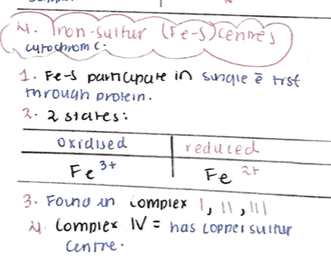 4. Iron-sulfur (Fe-S) centres
cytochrom c:
1. Fe-S participate in single ē trsf
through protein.
2. 2 states:
oxidised reduced
Fe³⁺ Fe²⁺
3. Found in complex I, II, III
4. Complex IV = has copper sulfur
centre.